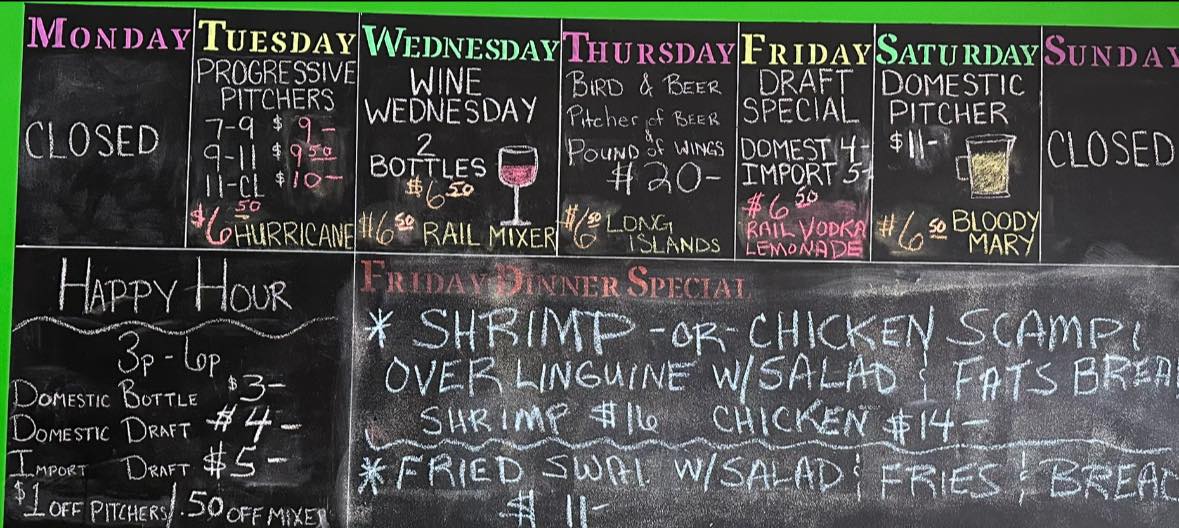 MONDAY
CLOSED
TUESDAY
PROGRESSIVE
PITCHERS
7-9 $9-
9-11 $9 50
11-CL $10-
$6 50
HURRICANE
WEDNESDAY
WINE
WEDNESDAY
2
BOTTLES
$6 50
$6 50 RAIL MIXER
THURSDAY
BIRD & BEER
Pitcher of BEER
&
POUND of WINGS
$20-
$6 50 LONG
ISLANDS
FRIDAY
DRAFT
SPECIAL
DOMEST 4-
IMPORT 5-
$6 50
RAIL VODKA
LEMONADE
SATURDAY
DOMESTIC
PITCHER
$11-
$6 50 BLOODY
MARY
SUNDAY
CLOSED
HAPPY HOUR
3p-6p
DOMESTIC BOTTLE $3-
DOMESTIC DRAFT $4-
IMPORT DRAFT $5-
$1 OFF PITCHERS/.50 OFF MIXER
FRIDAY DINNER SPECIAL
* SHRIMP -OR- CHICKEN SCAMPI
OVER LINGUINE W/SALAD & FATS BREA
SHRIMP $16 CHICKEN $14-
* FRIED SWAI W/SALAD & FRIES & BREAD
$11-